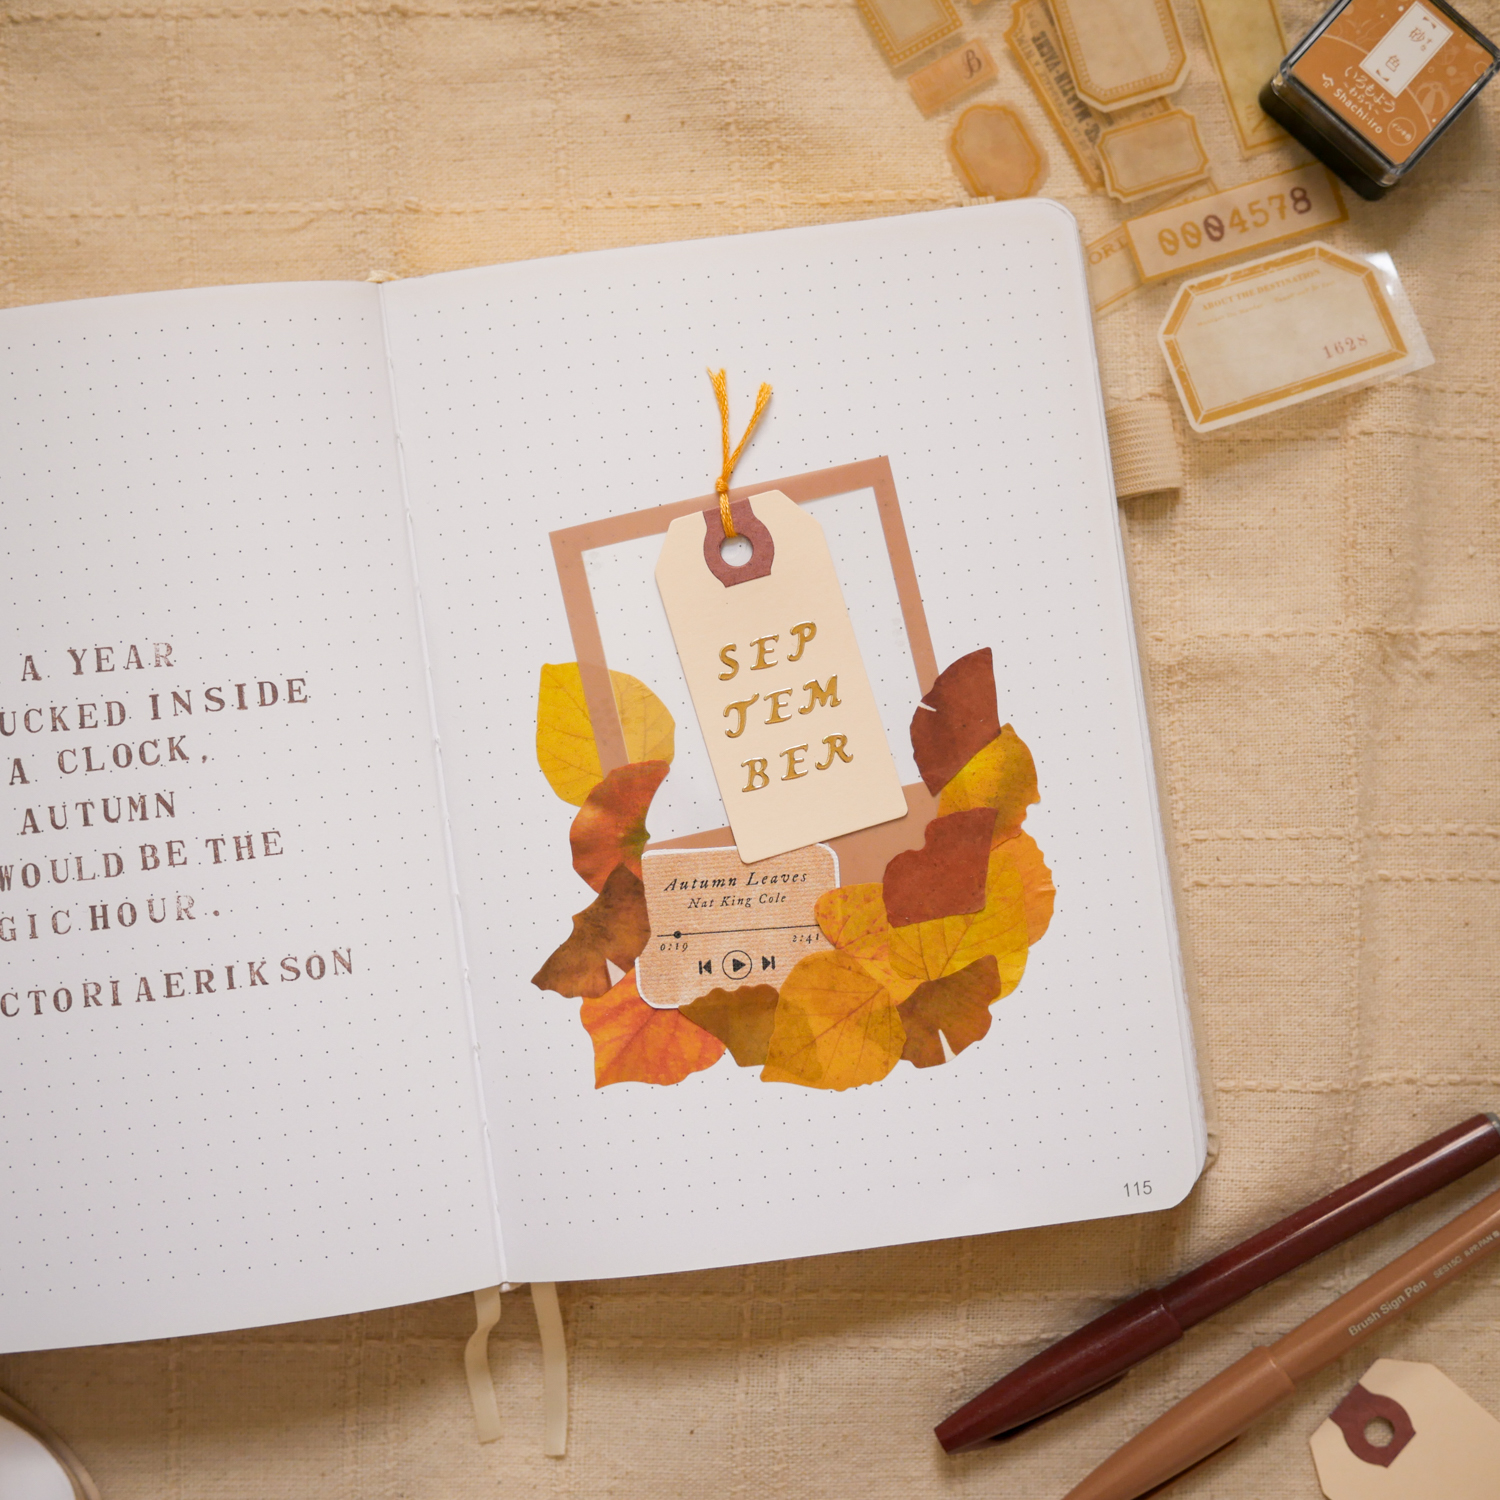 A YEAR
UCKED INSIDE
A CLOCK,
AUTUMN
WOULD BE THE
GIC HOUR.
CTORIA ERIKSON
SEP
TEM
BER
Autumn Leaves
Nat King Cole
0:19 2:41
115
B
0004578
ABOUT THE DESTINATION
1628
砂色
いろもよう
わらべ
Shachi iro
Brush Sign Pen